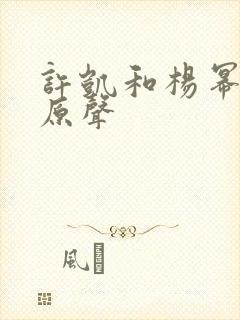 許凱和楊冪
原聲
風